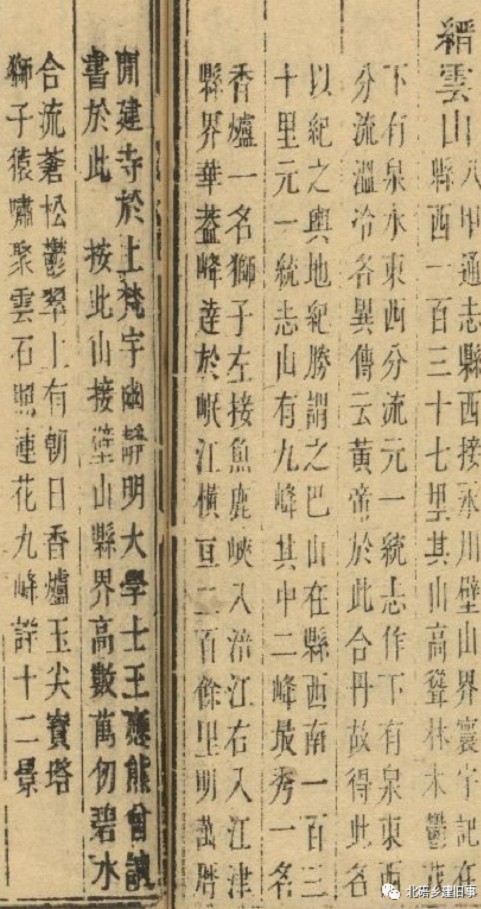 縉雲山
八甲通志縣西接永川璧山界寰宇記在
縣西一百三十七里其山高聳林木鬱茂
下有泉水東西分流元一統志作下有泉東西
分流溫冷各異傳云黃帝於此合丹故得此名
以紀之輿地紀勝謂之巴山在縣西南一百三
十里元一統志山有九峰其中二峰最秀一名
香爐一名獅子左接魚鹿峽入涪江右入江津
縣界華葢峰達於岷江橫亘二百餘里明萬曆
閒建寺於上梵宇幽靜明大學士王應熊曾讀
書於此 按此山接璧山縣界高數萬仞碧水
合流蒼松鬱翠上有朝日香爐玉尖寳塔
獅子猿嘯聚雲石照蓮花九峰詳十二景
北碚乡建旧事